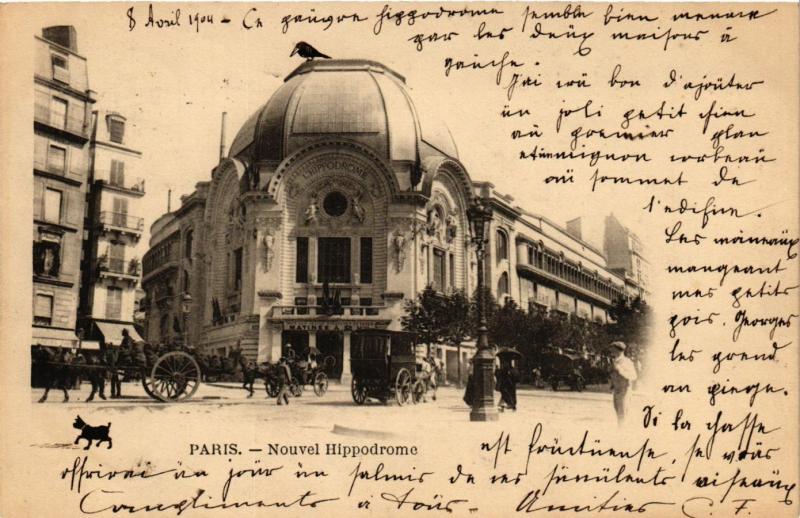 8 Avril 1904 - Ce pauvre hippodrome semble bien menacé
par les deux maisons à
gauche.
J'ai crû bon d'ajouter
un joli petit chien
au premier plan
et un mignon corbeau
au sommet de
l'édifice.
Les moineaux
mangeant
mes petits
pois. Georges
les prend
au piège.
Si la chasse
est fructueuse, je vous
offrirai un jour un salmis de ces succulents oiseaux
Compliments à tous. Amitiés C. F.
L'HIPPODROME
MATINÉE À 2H
PARIS. — Nouvel Hippodrome